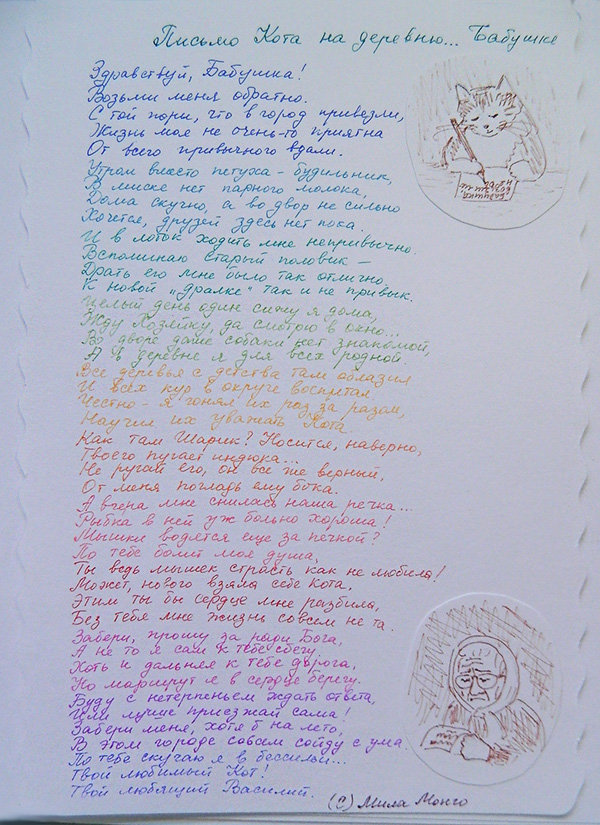 Письмо Кота на деревню... Бабушке
Здравствуй, Бабушка!
Возьми меня обратно.
С той поры, что в город привезли,
Жизнь моя не очень-то приятна
От всего привычного вдали.
Утром вместо петуха - будильник,
В миске нет парного молока,
Дома скучно, а во двор не сильно
Хочется, друзей здесь нет пока.
И в лоток ходить мне непривычно.
Вспоминаю старый половик -
Драть его мне было так отлично,
К новой „дралке" так и не привык.
Целый день один сижу я дома,
Жду Хозяйку, да смотрю в окно...
Во дворе даже собаки нет знакомой,
А в деревне я для всех родной
Все деревья с детства там облазил
И всех кур в округе воспитал
Честно - я гонял их раз за разом,
Научил их уважать Кота.
Как там Шарик? Носится, наверно,
Твоего пугает индюка...
Не ругай его, он все же верный,
От меня погладь ему бока.
А вчера мне снилась наша печка...
Рыбка в ней уж больно хороша!
Мышки водятся еще за печкой?
По тебе болит моя душа,
Ты ведь мышек страсть как не любила!
Может, нового взяла себе Кота,
Этим ты бы сердце мне разбила,
Без тебя мне жизнь совсем не та.
Забери, прошу за ради Бога,
А не то я сам к тебе сбегу.
Хоть и дальняя к тебе дорога,
Но маршрут я в сердце берегу.
Буду с нетерпеньем ждать ответа,
Или лучше приезжай сама!
Забери меня, хотя б на лето,
В этом городе совсем сойду с ума.
По тебе скучаю я в бессильи...
Твой любимый Кот!
Твой любящий Василий.
(с) Мила Монго